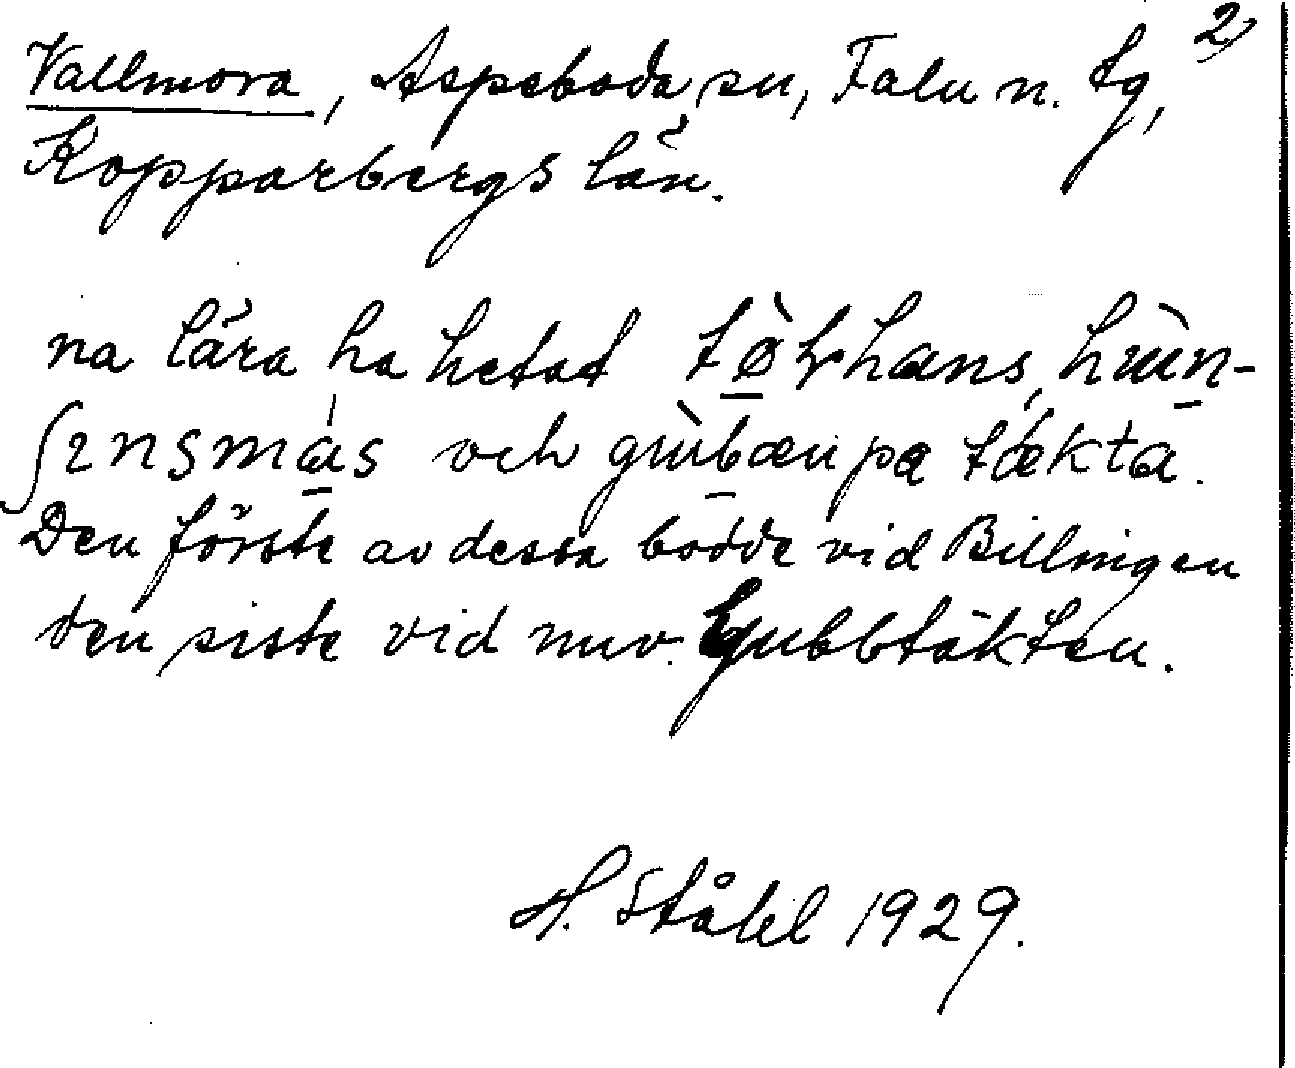 2)
Vallmora, Aspeboda sn, Falu n. tg,
Kopparbergs län.
na lära ha hetat
och
Den förste av dessa bodde vid Billingen
den siste vid nuv. Gubbtäkten.
H. Ståhl 1929.